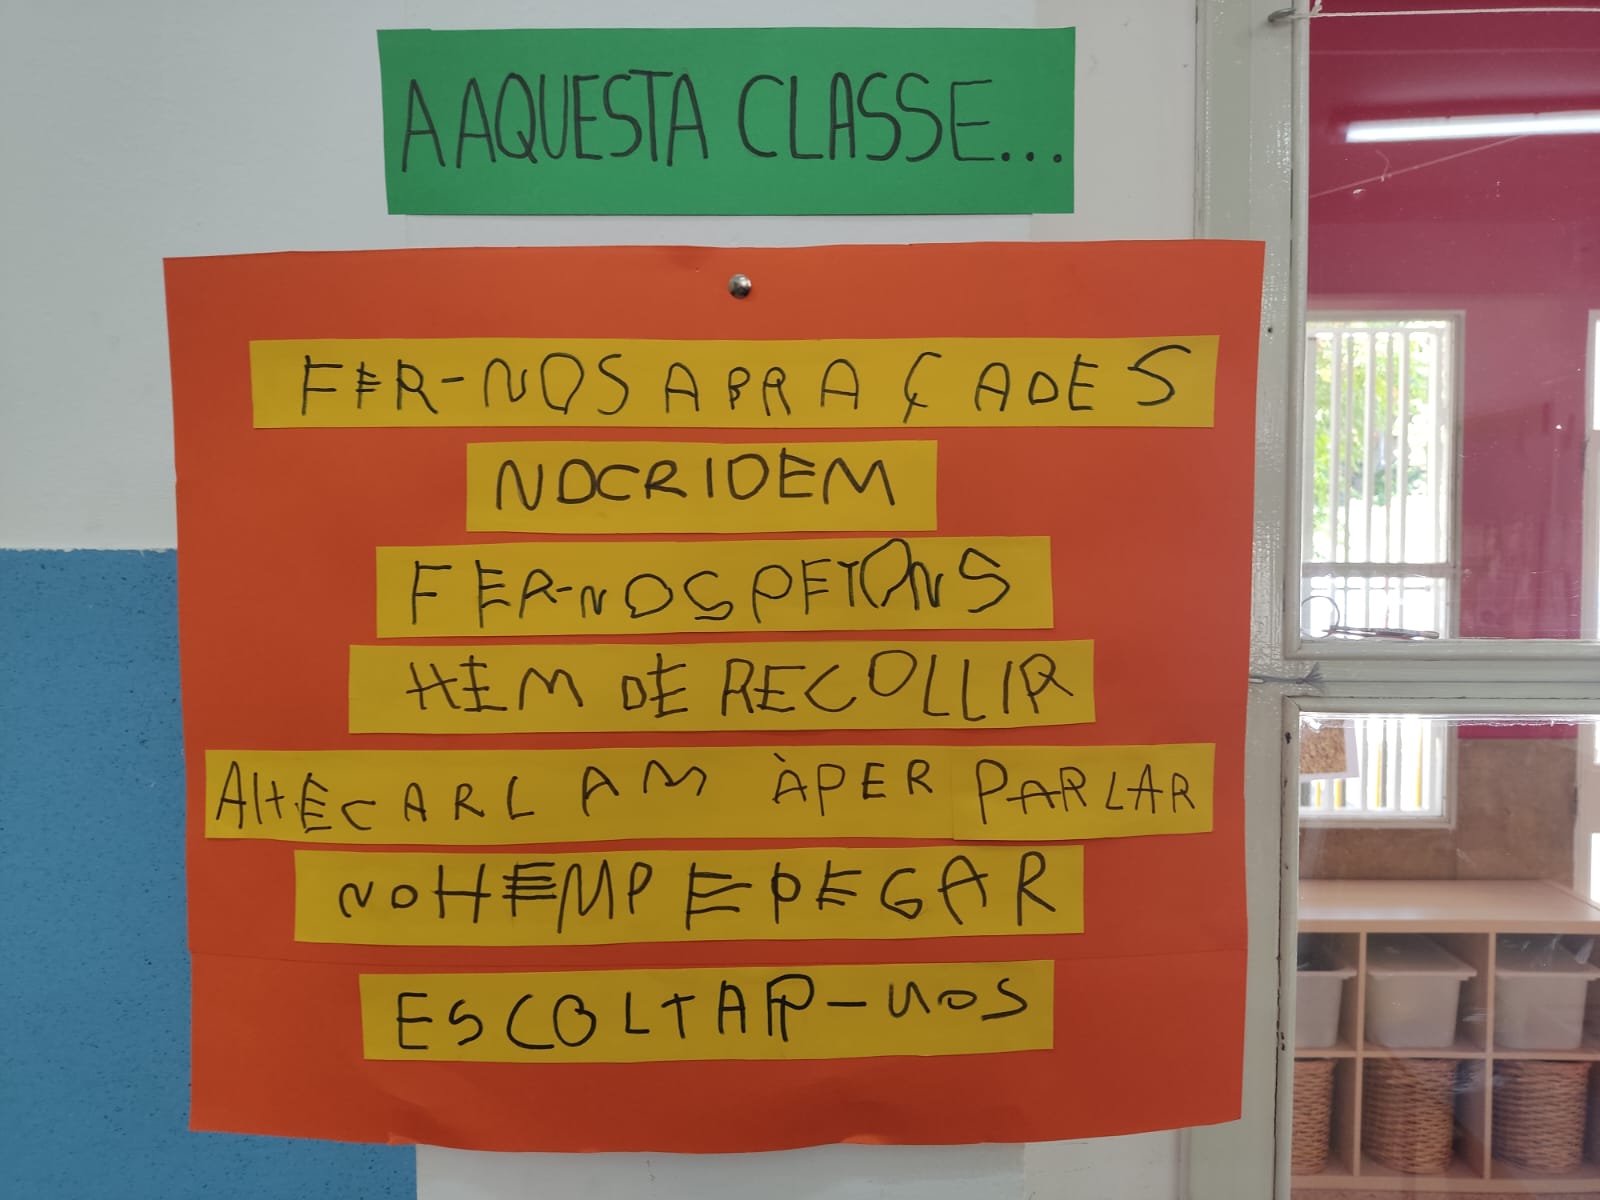 A AQUESTA CLASSE...
FER-NOS ABRAÇADES
NOCRIDEM
FER-NOS PETONS
HEM DE RECOLLIR
AIXECAR LA MÀ PER PARLAR
NO HEM PEPEGAR
ESCOLTAR-NOS